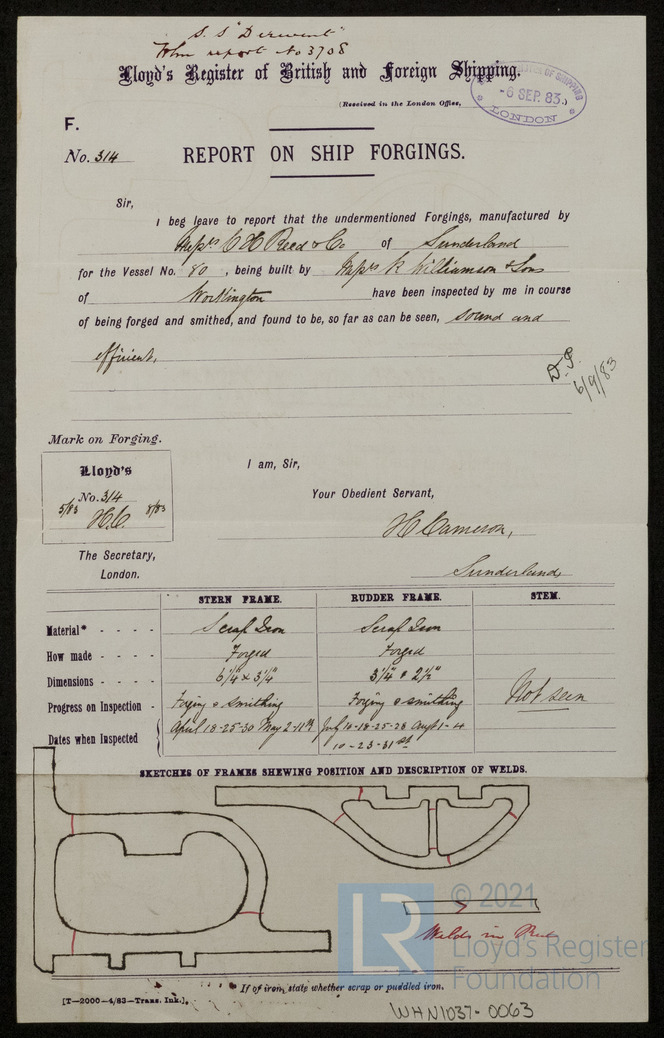 S.S "Derwent"
Whn report No 3708
Lloyd's Register of British and Foreign Shipping.
(Received in the London Office,
OF SHIPPING
-6 SEP. 83
LONDON
F.
No. 314
REPORT ON SHIP FORGINGS.
Sir,
I beg leave to report that the undermentioned Forgings, manufactured by
Messrs C H Reed & Co of Sunderland
for the Vessel No. 80, being built by Messrs R Williamson & Sons
of Workington have been inspected by me in course
of being forged and smithed, and found to be, so far as can be seen, sound and
efficient.
6/9/83
Mark on Forging.
Lloyd's
No. 314
5/83 H.C. 8/83
I am, Sir,
Your Obedient Servant,
H Cameron,
Sunderland
The Secretary,
London.
STERN FRAME. RUDDER FRAME. STEM.
Material* - - - - Scrap Iron Scrap Iron
How made - - - - Forged Forged
Dimensions - - - - 6¼" x 3¼" 3¼" & 2½"
Progress on Inspection - Forging & smithing Forging & smithing Not seen
Dates when Inspected April 18-25-30 May 2-11th July 10-18-25-28 Augst 1-4
10-23-31st
SKETCHES OF FRAMES SHEWING POSITION AND DESCRIPTION OF WELDS.
LR
© 2021
Lloyd's Register
Foundation
Welds in Red
* If of iron, state whether scrap or puddled iron.
[T—2000—4/83—Trans. Ink.]
WHN1037-0063